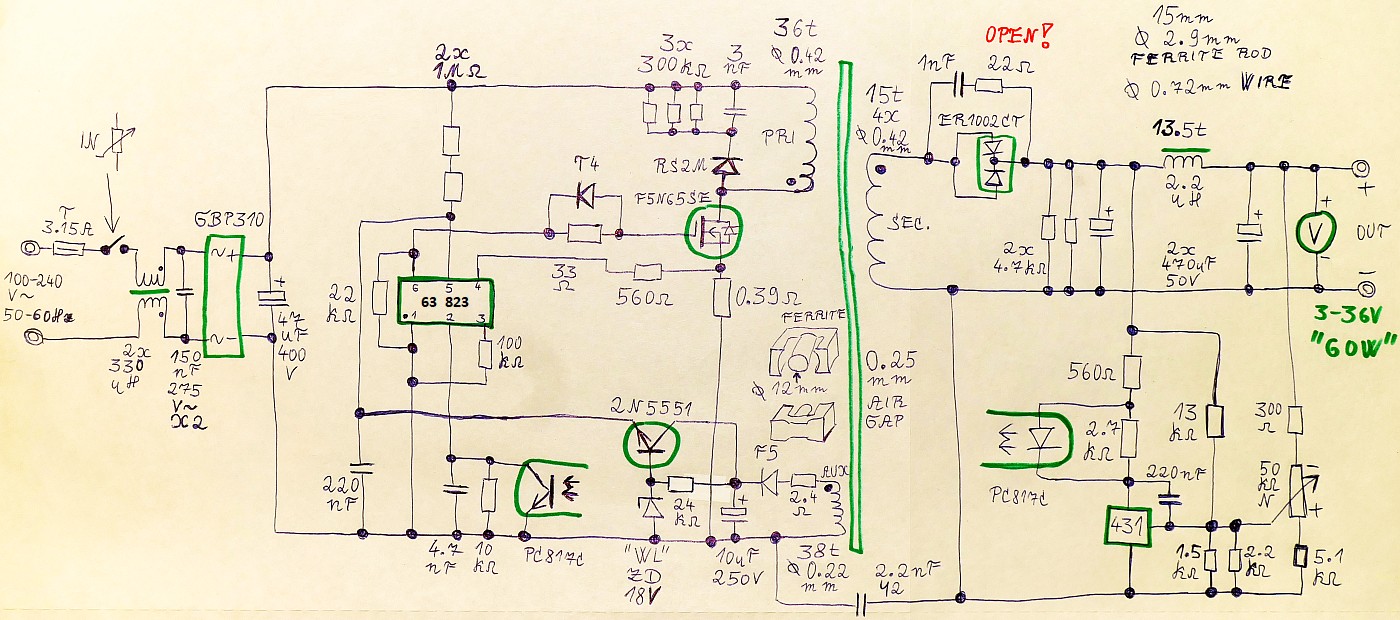 36t
Ø 0.42
mm
3x
300kΩ
3
nF
2x
1MΩ
OPEN!
15mm
Ø 2.9mm
FERRITE ROD
Ø 0.72mm WIRE
1nF
22Ω
15t
4x
Ø 0.42
mm
ER1002CT
13.5t
IN
PRI
RS2M
T4
F5N65SE
T
3.15A
GBP310
2.2
uH
+
+
+
+
V
-
OUT
SEC.
2x
4.7kΩ
2x
470uF
50V
-
100-240
V~
50-60Hz
~+
~-
+
47
uF
400
V
22
kΩ
6 5 4
63 823
1 2 3
33
Ω
560Ω
0.39Ω
100
kΩ
FERRITE
Ø 12mm
0.25
mm
AIR
GAP
3-36V
"60W"
2x
330
uH
150
nF
275
V~
X2
2N5551
560Ω
2.7
kΩ
13
kΩ
300
Ω
F5
AUX
2.4
Ω
24
kΩ
+
PC817C
220nF
50
kΩ
N
-
+
431
220
nF
4.7
nF
10
kΩ
PC817C
"WL"
ZD
18V
10uF
250V
38t
Ø 0.22
mm
2.2nF
Y2
1.5
kΩ
2.2
kΩ
5.1
kΩ